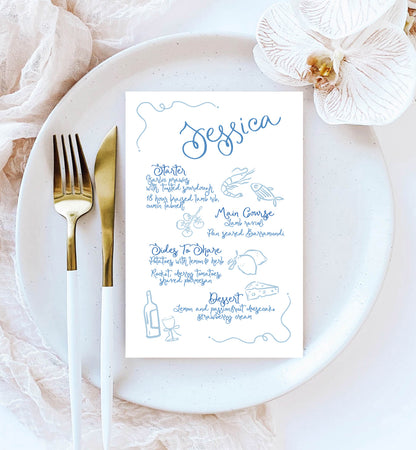 Jessica
Starter
Garlic prawns
with toasted sourdough
18 hour braised lamb rib,
Main Course
Lamb
Pan seared Barramundi
Sides To Share
Potatoes with lemon & herb
Rocket, cherry tomatoes,
shaved parmesan
Dessert
Lemon and passionfruit cheesecake
strawberry cream